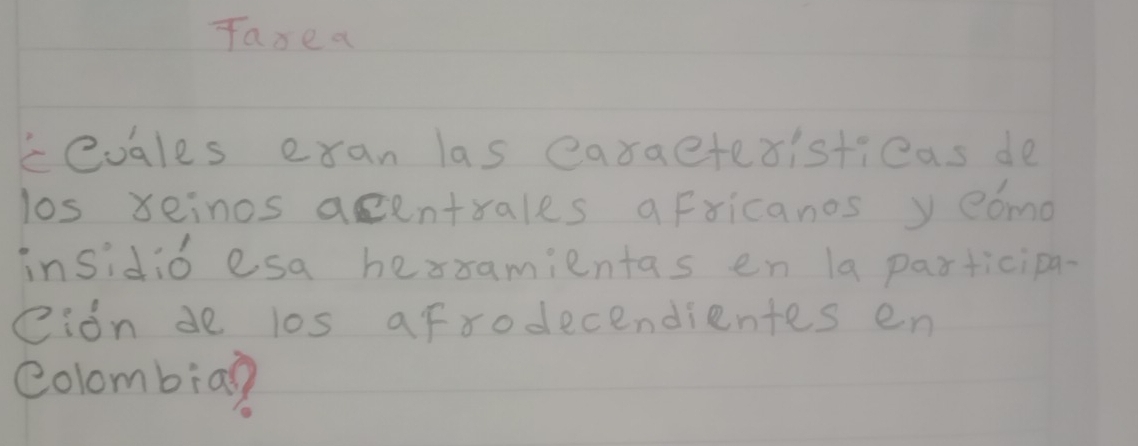 Tarea
¿Cuáles eran las características de
los reinos acentrales africanos y cómo
insidió esa herramientas en la participa-
ción de los afrodecendientes en
Colombia?